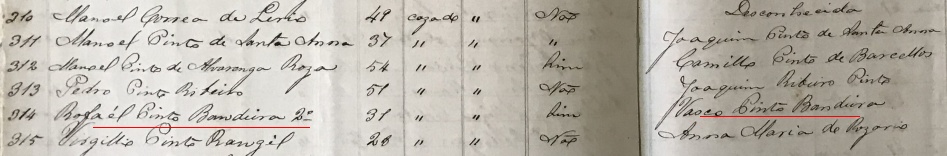 310 Manoel Correa de Lima 49 cazado " Não Desconhecida
311 Manoel Pinto de Santa Anna 37 " " " Joaquim Pinto de Santa Anna
312 Manoel Pinto de Alvarenga Roza 54 " " Sim Camillo Pinto de Barcellos
313 Pedro Pinto Ribeiro 51 " " Não Joaquim Ribeiro Pinto
314 Rafaél Pinto Bandeira 2º 31 " " Sim Vasco Pinto Bandeira
315 Virgilio Pinto Rangél 28 " " Não Anna Maria do Rozario